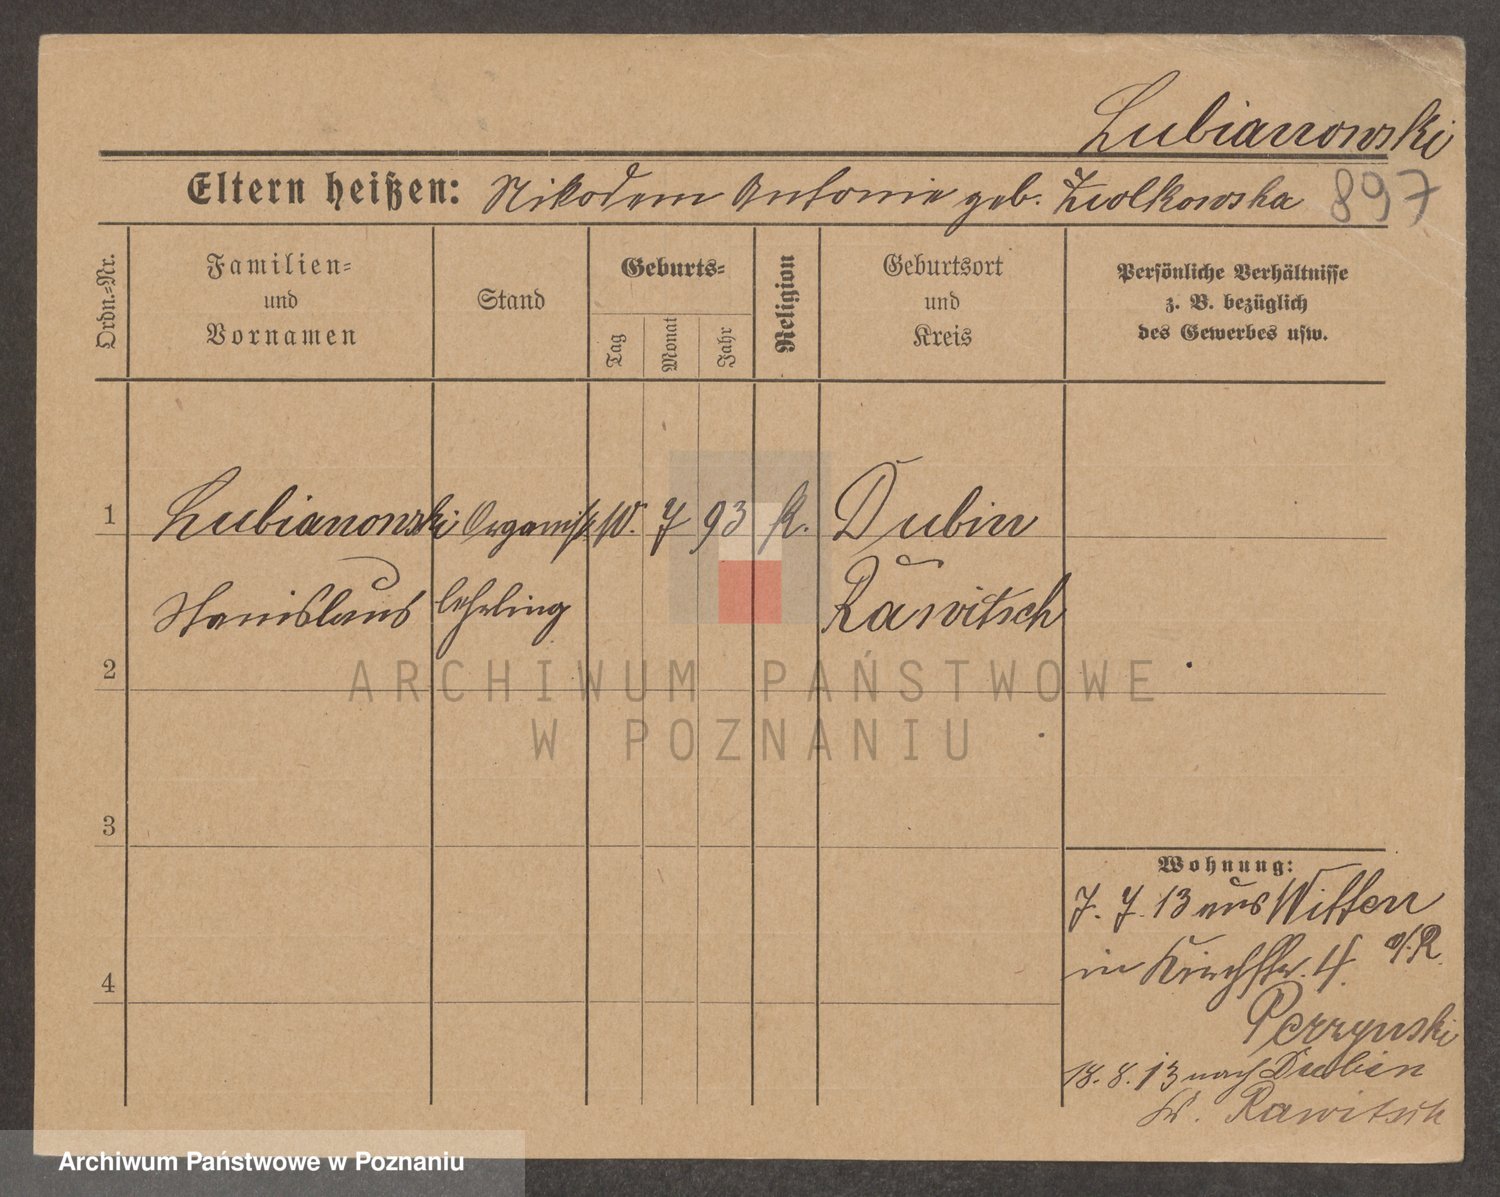 Lubianowski
Eltern heißen: Nikodem Antonie geb. Ziolkowska 897
Ordn.-Nr.
Familien-
und
Vornamen
Stand
Geburts-
Tag
Monat
Jahr
Religion
Geburtsort
und
Kreis
Persönliche Verhältnisse
z. B. bezüglich
des Gewerbes usw.
1 Lubianowski Organist 10. 7 93 K. Dubin
Stanislaus lehrling Rawitsch
2
3
4
Wohnung:
7. 7. 13 aus Witten
in Kirchstr. 4. a/R.
Perzynski
18. 8. 13 nach Dubin
Kr. Rawitsch
ARCHIWUM PAŃSTWOWE
W POZNANIU
Archiwum Państwowe w Poznaniu